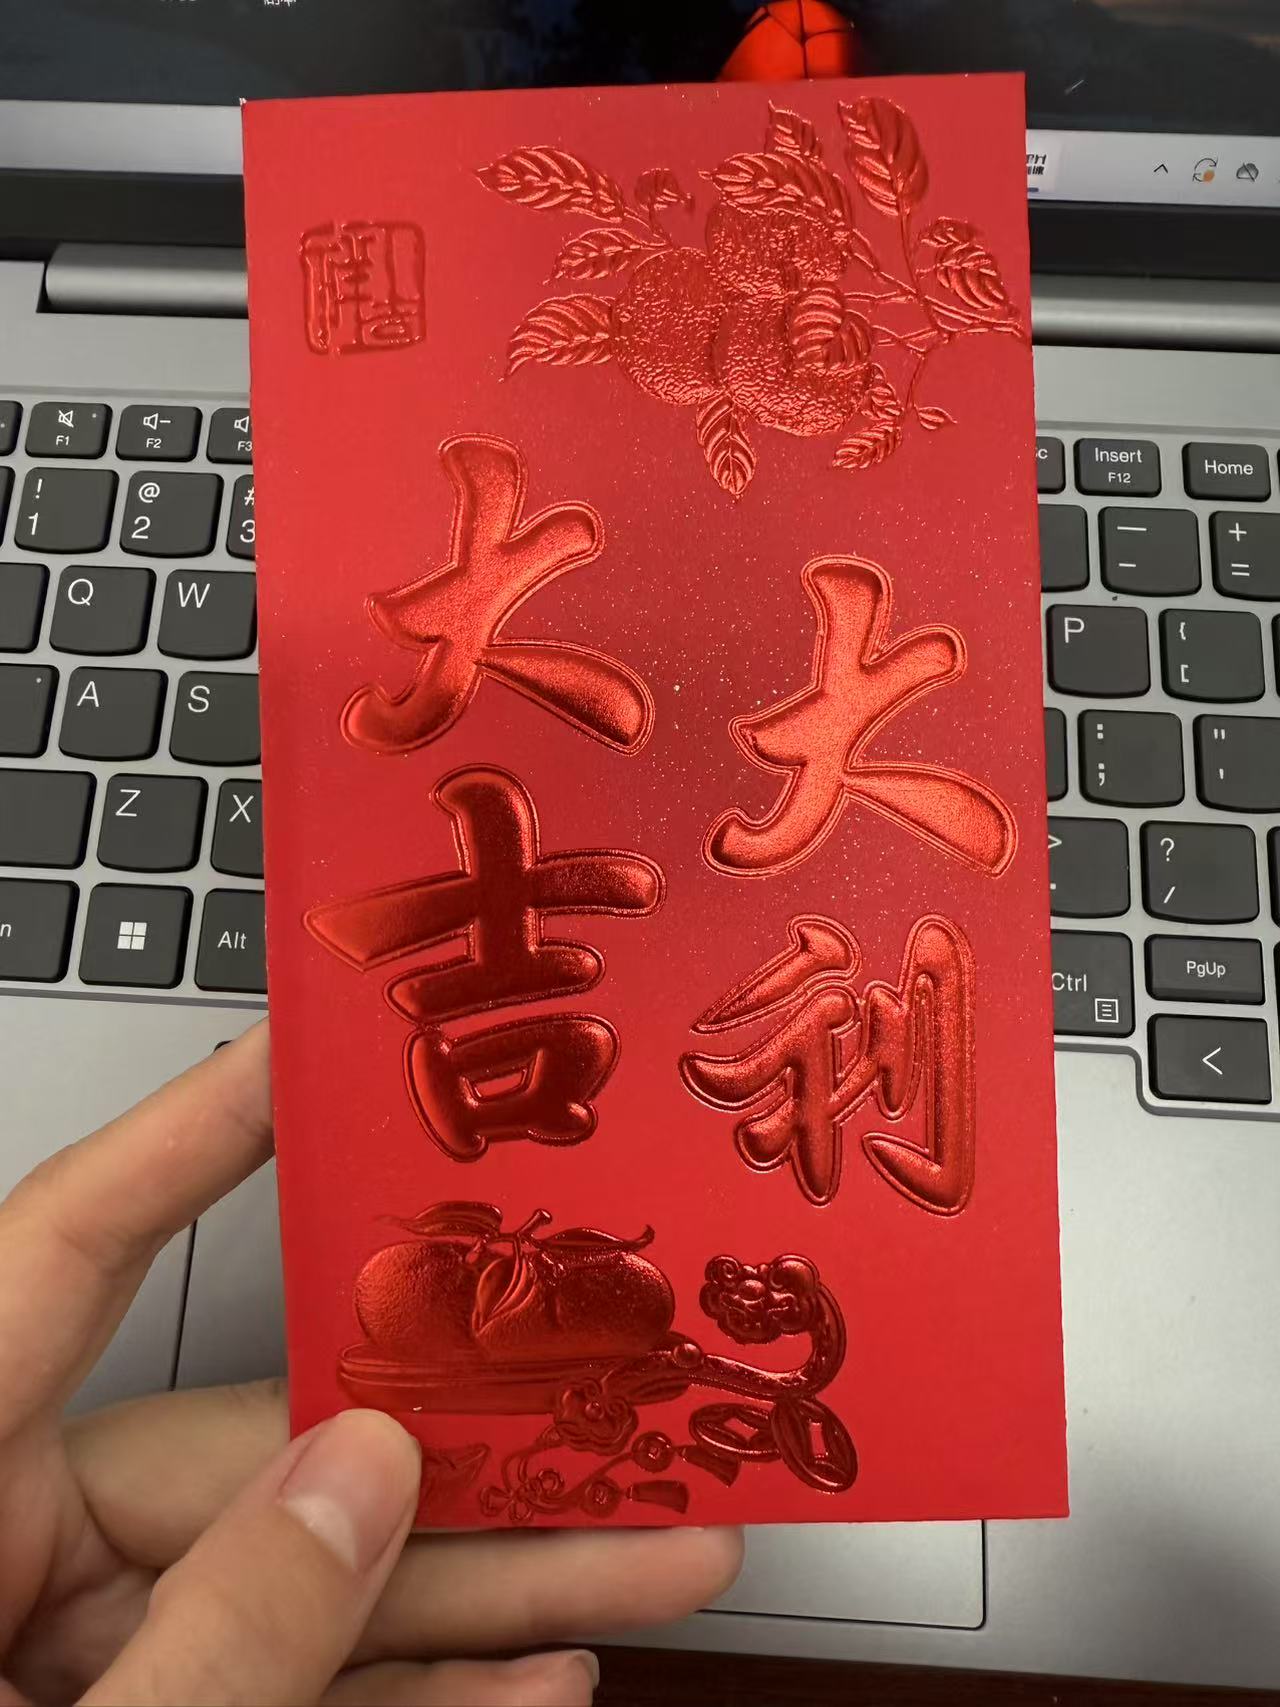 大吉
大利
F1
F2
F3
Insert
F12
Home
!
1
@
2
#
3
—
-
+
=
Q
W
P
{
[
A
S
:
;
"
'
Z
X
>
.
?
/
Alt
Ctrl
PgUp
<